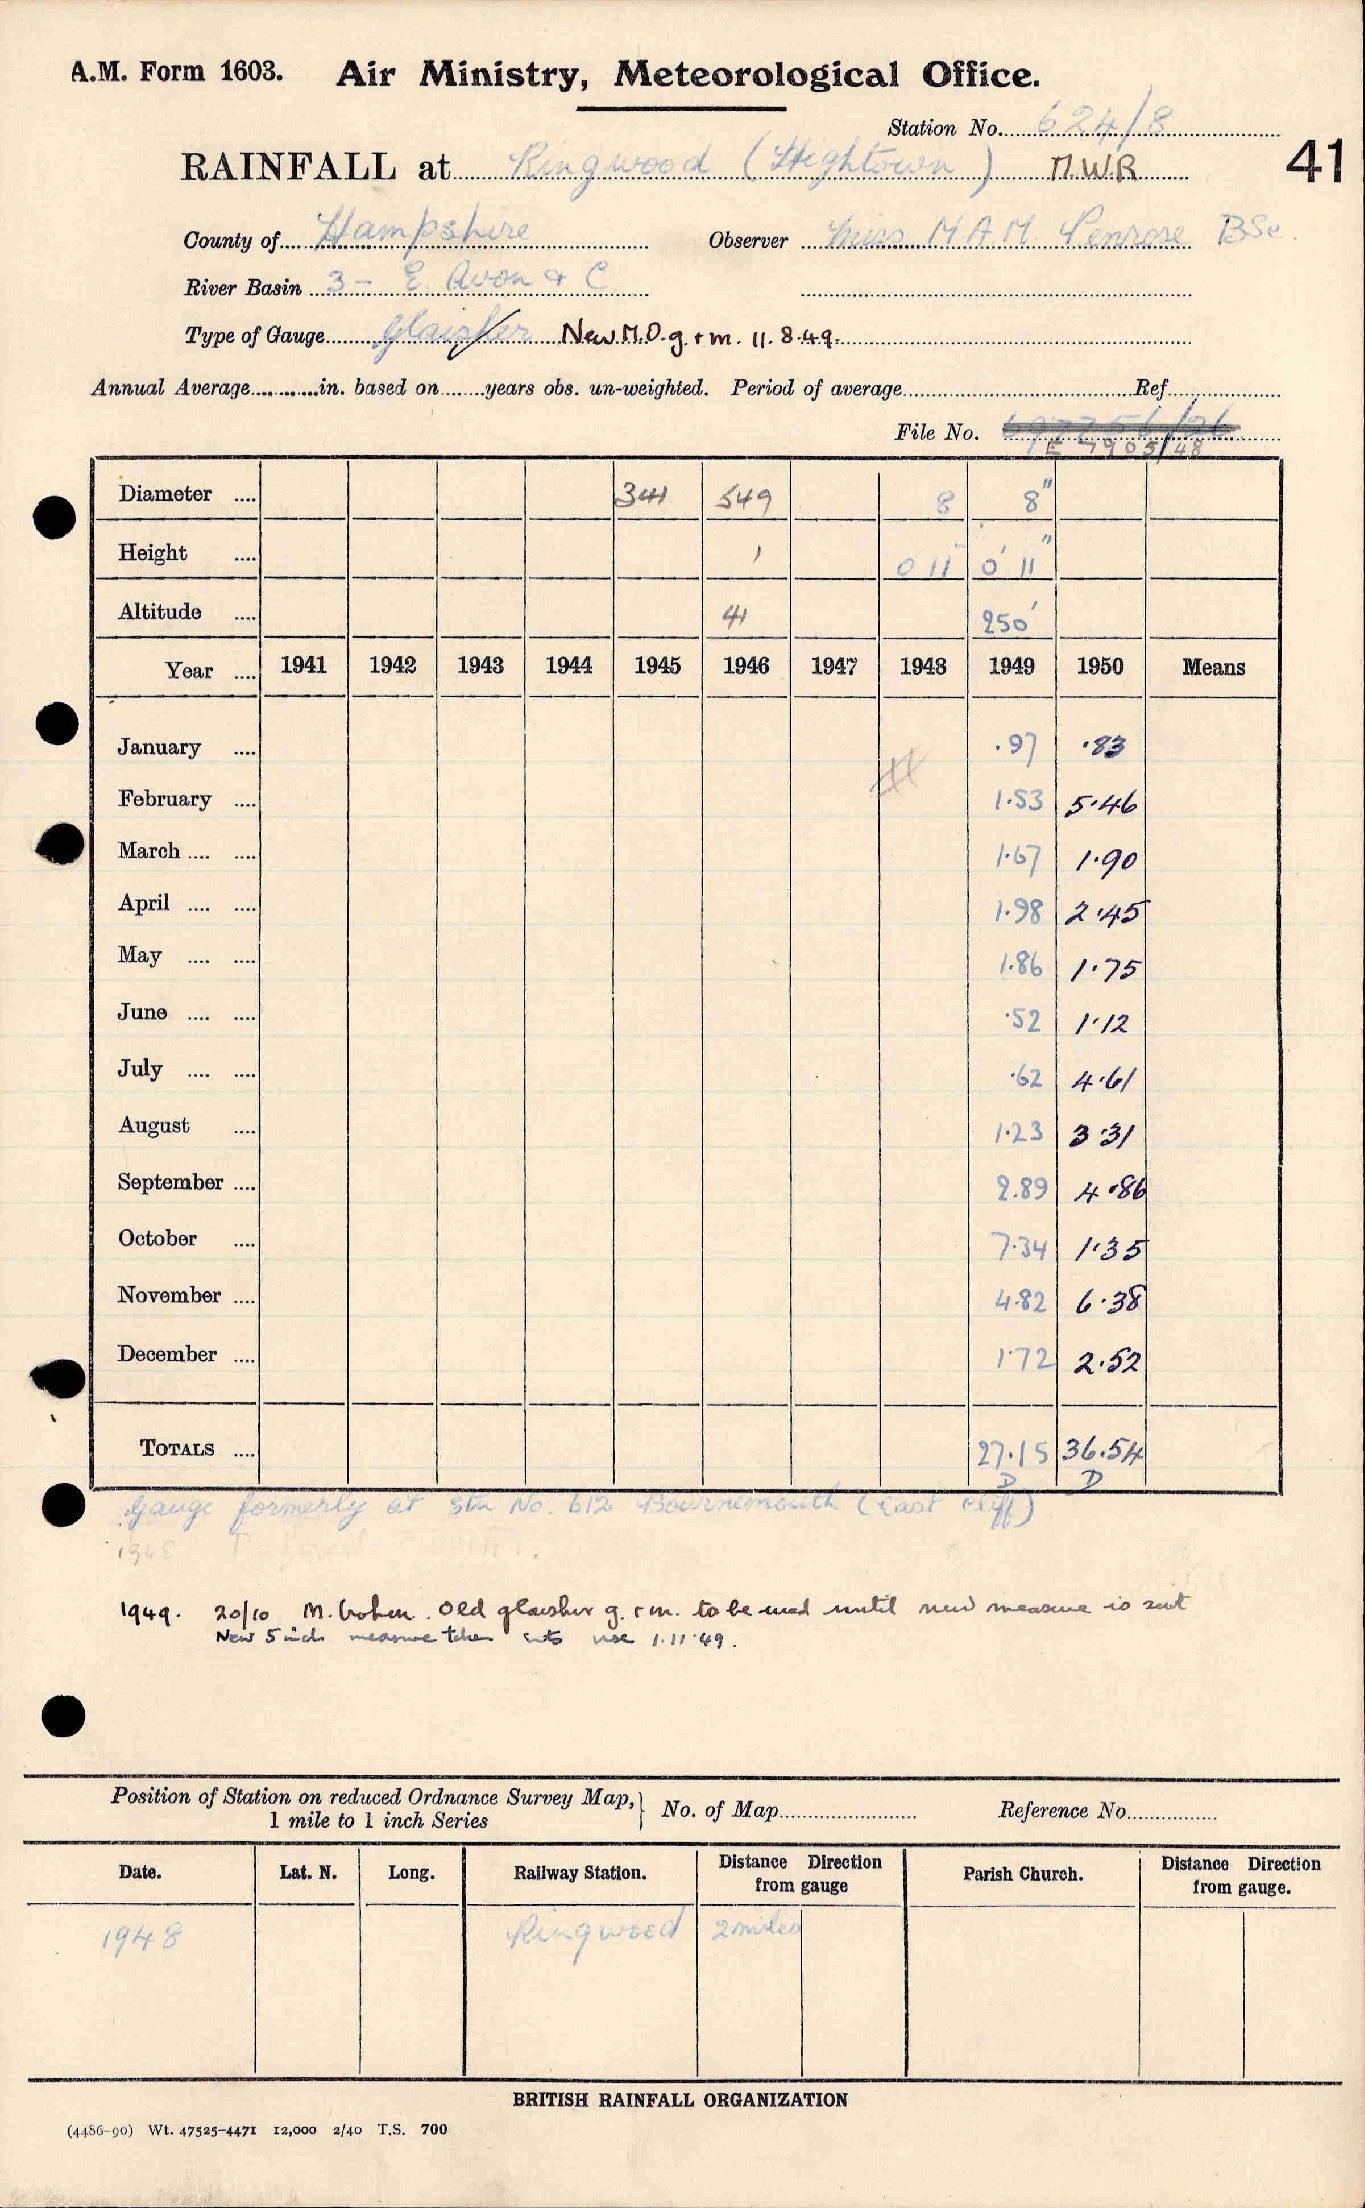 A.M. Form 1603. Air Ministry, Meteorological Office.
Station No. 624/8
RAINFALL at Ringwood (Hightown) M.W.R 41
County of Hampshire Observer Miss M A M Penrose BSc.
River Basin 3 - E. Avon & C
Type of Gauge Glaisher New M.O. g. + m. 11.8.49.
Annual Average............in. based on........years obs. un-weighted. Period of average........ Ref........
File No.
E 7905/48
Diameter .... 341 549 8 8"
Height .... 1 0 11" 0' 11"
Altitude .... 41 250'
Year .... 1941 1942 1943 1944 1945 1946 1947 1948 1949 1950 Means
January .... .97 .83
February .... 1.53 5.46
March .... .... 1.67 1.90
April .... .... 1.98 2.45
May .... .... 1.86 1.75
June .... .... .52 1.12
July .... .... .62 4.61
August .... 1.23 3.31
September .... 2.89 4.86
October .... 7.34 1.35
November .... 4.82 6.38
December .... 1.72 2.52
TOTALS .... 27.15 36.54
D D
Gauge formerly at Stn No. 612 Bournemouth (East Cliff)
1948
1949. 20/10 M. Cohen. Old glaisher g. + m. to be used until new measure is sent
New 5 inch measure taken into use 1.11.49.
Position of Station on reduced Ordnance Survey Map, No. of Map........ Reference No........
1 mile to 1 inch Series
Date. Lat. N. Long. Railway Station. Distance Direction from gauge Parish Church. Distance Direction from gauge.
1948 Ringwood 2 miles
BRITISH RAINFALL ORGANIZATION
(4486-90) Wt. 47525-4471 12,000 2/40 T.S. 700